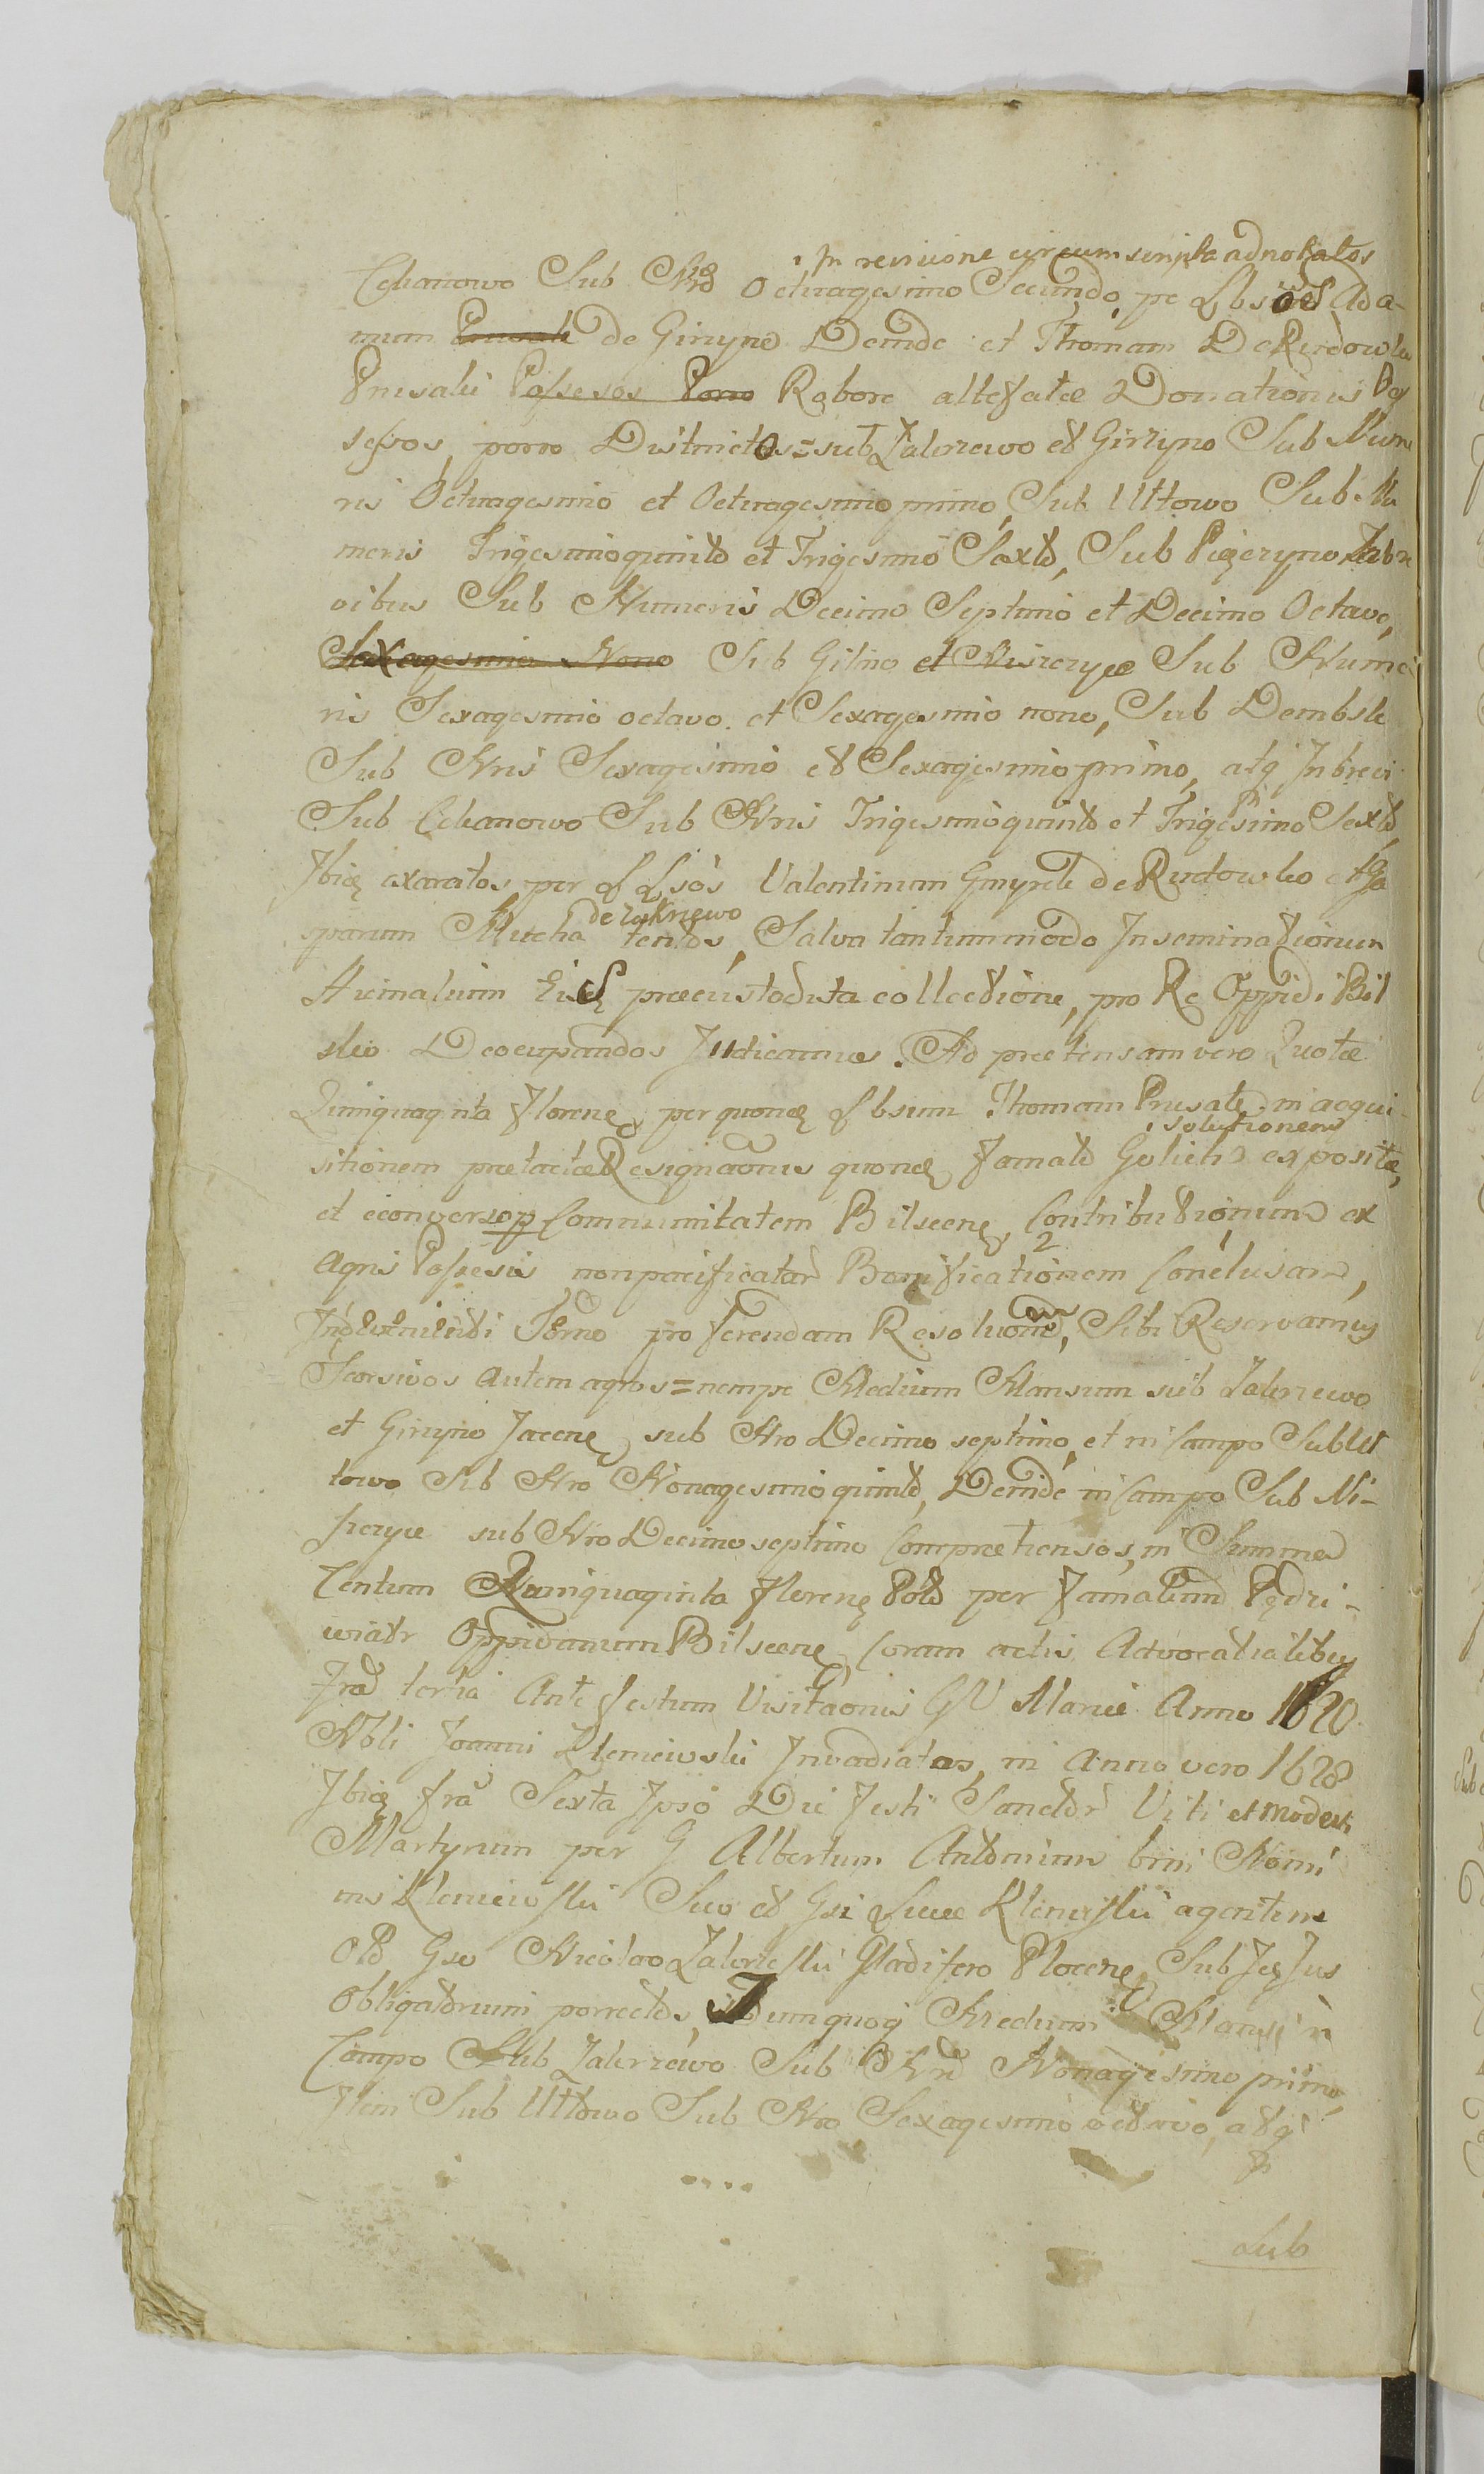 In revisione circumscripta adnotatos
Cekanowo Sub Nro Octuagesimo Secundo, pe Lbsios Ada-
mum de Girzyno Deinde et Thomam De Rudowko
Prusaki Possesos Porro Robore altefatæ Donationis Pos
sessos, porro Districtos = sub Zakrzewo et Girzyno Sub Nume
ris Octuagesimo et Octuagesimo primo, Sub Uttowo Sub Nu
meris Trigesimo quinto et Trigesimo Sexto, Sub Pięczyno Inbre
vibus Sub Numeris Decimo Septimo et Decimo Octavo,
Sexagesimo Nono Sub Gilino et Niszczyce Sub Nume
ris Sexagesimo octavo et Sexagesimo nono, Sub Dembsk
Sub Nris Sexagesimo et Sexagesimo primo, atq Inbrevi
Sub Cekanowo Sub Nris Trigesimo quinto et Trigesimo Sexto
Ibiq exaratos, per Lsos Valentinum Gmyrek de Rudowko et Ga
de Zakrzewo
sparum Mucha tentos, Salva tantummodo Inseminationum
Hiemalium præcustodita collectione, pro Re Oppidi Biel
sko Deocupandos Judicamus. Ad prætensam vero Quotæ
Quinquaginta Floreng per quong Lbsum Thomam Prusak in acqui-
solutionem
sitionem prætactæ Resignaonis quong Famato Golich expositæ,
et econverso p Communitatem Bilsceng Contributionum ex
2
Agris Possesis non pacificatar Bonificationem Conclusam,
Termo pro ferendam Resoluonem, Sibi Reservamus
Seorsivos autem agros = nempe Medium Mansum sub Zakrzewo
et Girzyno Jaceng sub Nro Decimo septimo, et in Campo Sub Ut
towo Sub Nro Nonagesimo quinto, Deinde in Campo Sub Ni-
szczyce sub Nro Decimo septimo Compræhensos, in Summa
Centum Quinquaginta Floreng Pold per Famatum Pędzi-
wiatr Oppidanum Bilsceng Coram actis Advocatialibus
Fria tertia Ante festum Visitaonis GV Mariæ Anno 1620
Nbli Joanni Kleniewski Invadiatos, in Anno vero 1628
Ibiq fria Sexta Ipso Die Festi Sanctor Viti et Modesti
Martyrum per G Albertum Antonium bini Nomi
nis Kleniewski Suo et Gsi Lucæ Kleniewski agentem
Gso Nicolao Zakrzeski Gladifero Ploceng, Sub Jeg Jus
Obligatorium porrectos, Itumquoq Medium Mansi in
Campo Sub Zakrzewo Sub Nro Nonagesimo primo,
Item Sub Uttowo Sub Nro Sexagesimo octavo, atq
Sub